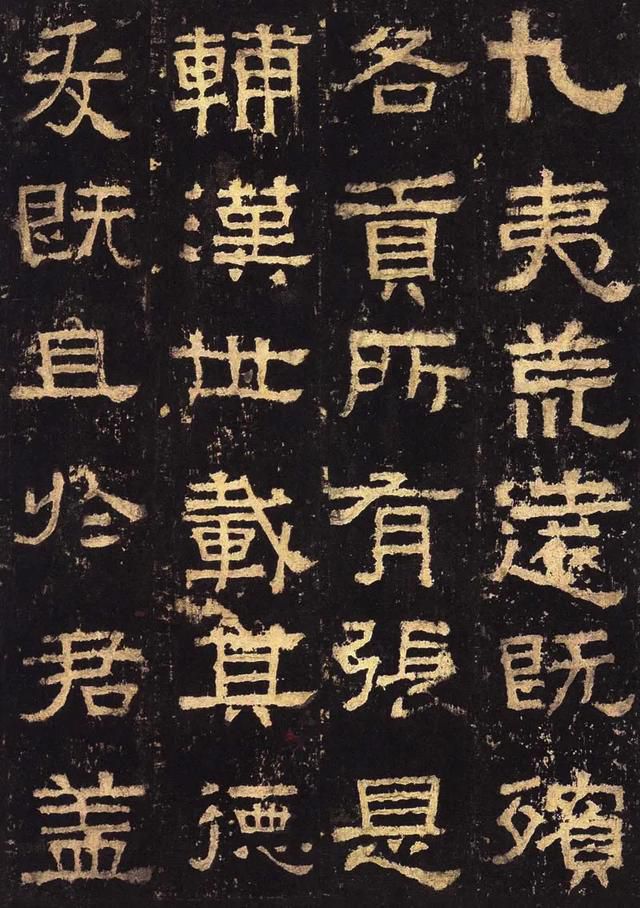 九夷荒遠既殯
各貢所有張是
輔漢世載其德
爰既且於君盖